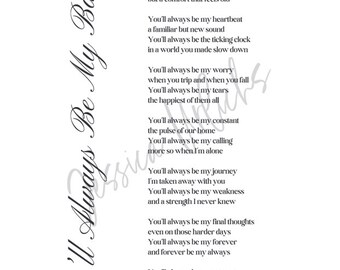 You'll always be my heartbeat
a familiar but new sound
You'll always be the ticking clock
in a world you made slow down
You'll always be my worry
when you trip and when you fall
You'll always be my tears
the happiest of them all
You'll always be my constant
the pulse of our home
You'll always be my calling
more so when I'm alone
You'll always be my journey
I'm taken away with you
You'll always be my weakness
and a strength I never knew
You'll always be my final thoughts
even on those harder days
You'll always be my forever
and forever be my always
'll Always Be My Ba
Jessica